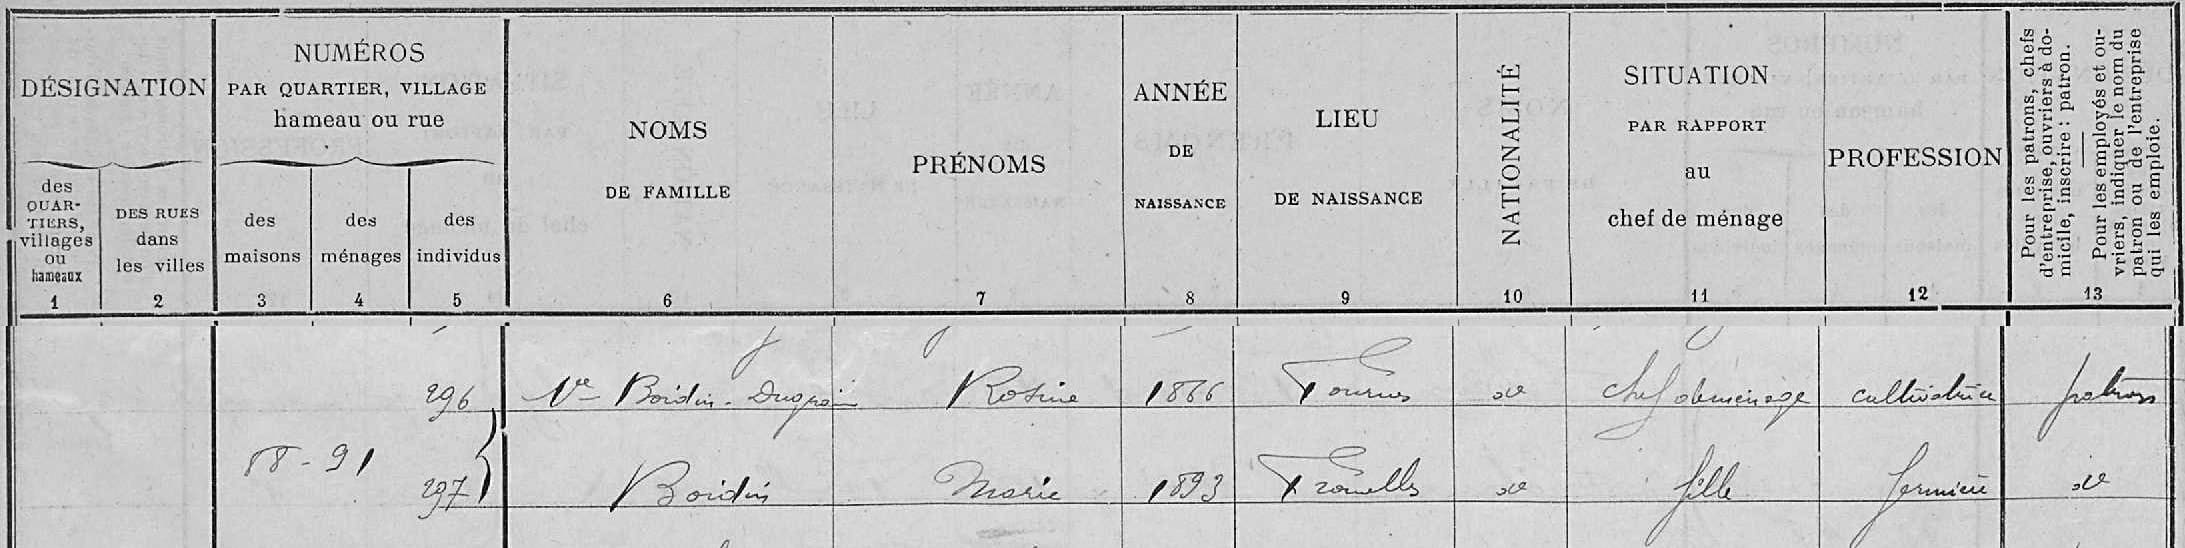 DÉSIGNATION
des QUAR-TIERS, villages ou hameaux
1
DES RUES dans les villes
2
NUMÉROS
PAR QUARTIER, VILLAGE
hameau ou rue
des maisons
3
des ménages
4
des individus
5
NOMS
DE FAMILLE
6
PRÉNOMS
7
ANNÉE
DE
NAISSANCE
8
LIEU
DE NAISSANCE
9
NATIONALITÉ
10
SITUATION
PAR RAPPORT
au
chef de ménage
11
PROFESSION
12
Pour les patrons, chefs
d'entreprise, ouvriers à do-
micile, inscrire : patron.
Pour les employés et ou-
vriers, indiquer le nom du
patron ou de l'entreprise
qui les emploie.
13
296 Vve Boidin - Rosine 1866 Fournes d° chef de ménage cultivatrice patron
88 - 91 297 Boidin Marie 1893 Fromelles d° fille fermière d°